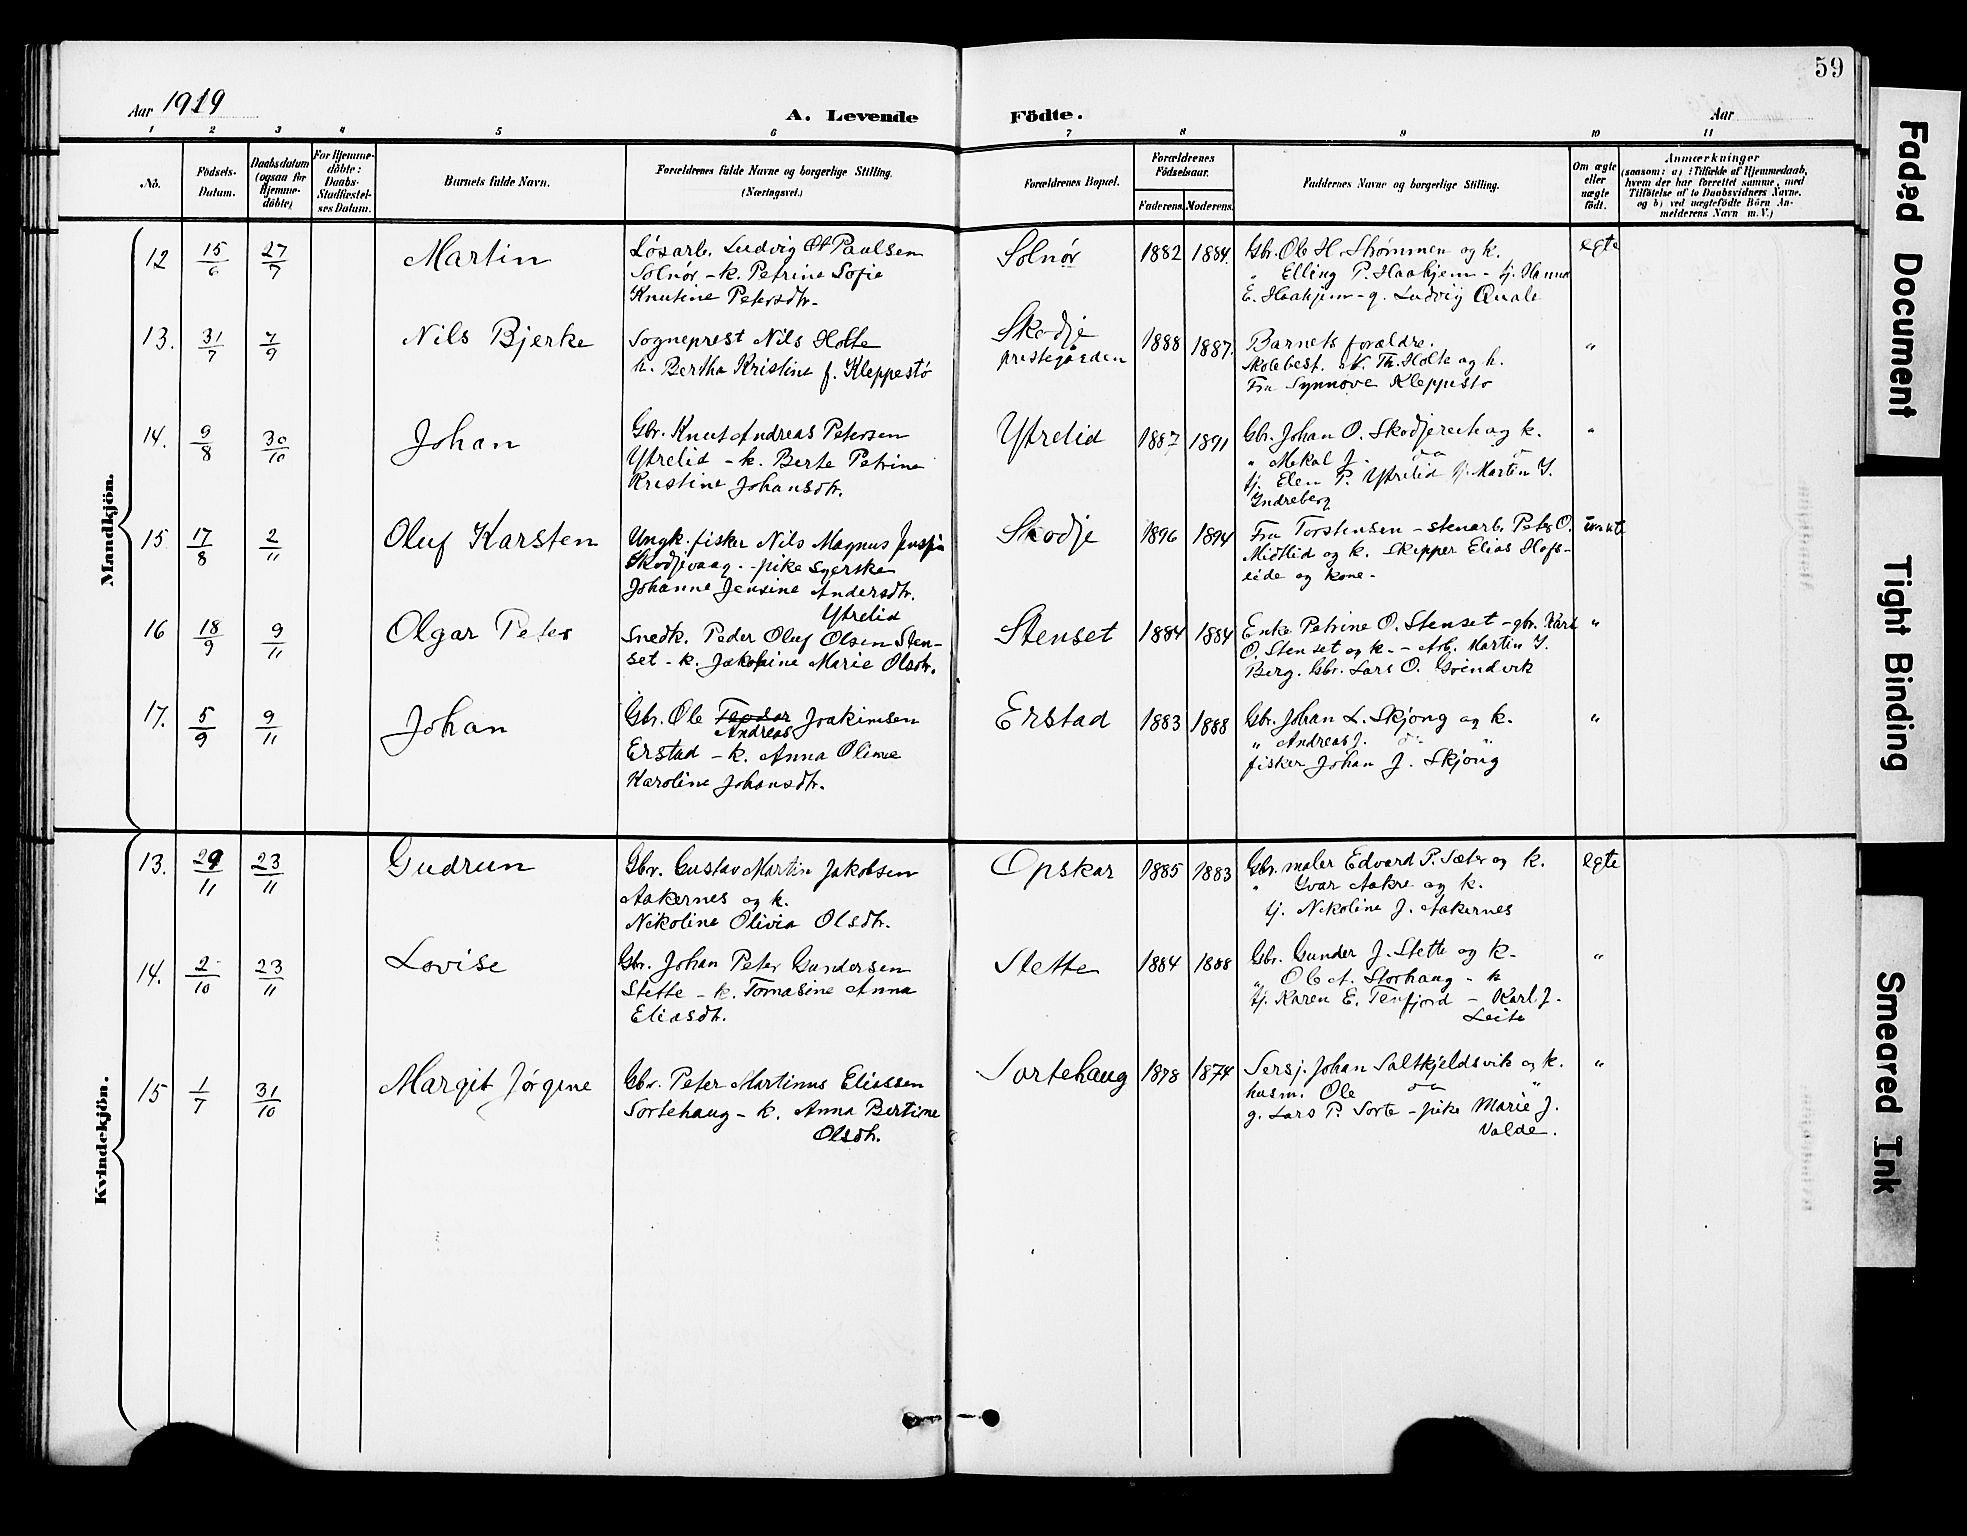 59
Aar 1919
A. Levende Födte.
Aar
1 2 3 4 5 6 7 8 9 10 11
No.
Födsels-
Datum.
Daabsdatum
(ogsaa for
Hjemme-
döbte)
For Hjemme-
döbte:
Daabs-
Stadfæstel-
ses Datum.
Barnets fulde Navn.
Forældrenes fulde Navne og borgerlige Stilling.
(Næringsvei.)
Forældrenes Bopæl.
Forældrenes
Födselsaar.
Faderens. Moderens.
Faddernes Navne og borgerlige Stilling.
Om ægte
eller
uægte
födt.
Anmærkninger
(saasom: a) i Tilfælde af Hjemmedaab,
hvem der har forrettet samme, med
Tilföielse af to Daabsvidners Navne.
og b) ved uægtefödte Börn An-
melderens Navn m. V.)
Mandkjön.
12 15/6 27/7 Martin
Løsarb. Ludvig Paulsen
Solnør - k. Petrine Sofie
Knutine Petersdtr.
Solnør 1882 1884.
Gbr. Ole H. Strømmen og k.
" Elling P. Haahjem - tj. Hanna
E. Haahjem - g. Ludvig Qvale
egte
13. 31/7 7/9 Nils Bjerke
Sogneprest Nils Holte
h. Bertha Kristine f. Kleppestø
Skodje
prestegården
1888 1887.
Barnets forældre.
Skolebest. Th. Holte og h.
Fru Synnøve Kleppestø
"
14. 9/8 30/10 Johan
Gbr. Knut Andreas Petersen
Ytrelid - k. Berte Petrine
Kristine Johansdtr.
Ytrelid 1887 1891
Gbr. Johan O. Skodjereit og k.
" Mekal J.
tj. Elen P. Ytrelid tj. Martin I.
Indreberg
"
15 17/8 2/11 Oluf Karsten
Ungk. fisker Nils Magnus
Skodjevaag - pike syerske
Johanne Jensine Andersdtr.
Ytrelid
Skodje 1896 1894
Fru Torstensen - stenarb. Peter O.
Midtlid og k. Skipper Elias Hofs-
eide og kone -
16 18/9 9/11 Olgar Peter
Snedk. Peder Oluf Olsen Sten-
set - k. Jakobine Marie Olsdtr.
Stenset 1884 1884
Enke Petrine O. Stenset - gbr. Karl
O. Stenset og k. - Arb. Martin I.
Berg. Gbr. Lars O. Grindvik
"
17. 5/9 9/11 Johan
Gbr. Ole Teodor Joakimsen
Andreas
Erstad - k. Anna Oline
Karoline Johansdtr.
Erstad 1883 1888
Gbr. Johan L. Skjong og k.
" Andreas J. do "
fisker Johan J. Skjong
"
Kvindekjön.
13. 29/11 23/11 Gudrun
Gbr. Gustav Martin Jakobsen
Aakernes og k.
Nikoline Olivia Olsdtr.
Opskar 1885 1883
Gbr. maler Edvard P. Sæter og k.
" Ivar Aakre og k.
tj. Nikoline J. Aakernes
egte
14. 2/10 23/11 Lovise
Gbr. Johan Peter Gundersen
Stette - k. Tomasine Anna
Eliasdtr.
Stette 1884 1888
Gbr. Gunder J. Stette og k -
" Ole A. Storhaug - k
tj. Karen E. Tenfjord - Karl J.
Leite
"
15 1/7 31/10 Margit Jørgine
Gbr. Peter Martinus Eliassen
Sortehaug - k. Anna Bertine
Olsdtr.
Sortehaug 1878 1874
Sersj. Johan Saltkjeldsvik og k.
husm. Ole do "
g. Lars P. Sorte - pike Marie J.
Valde.
"
Faded Document
Tight Binding
Smeared Ink